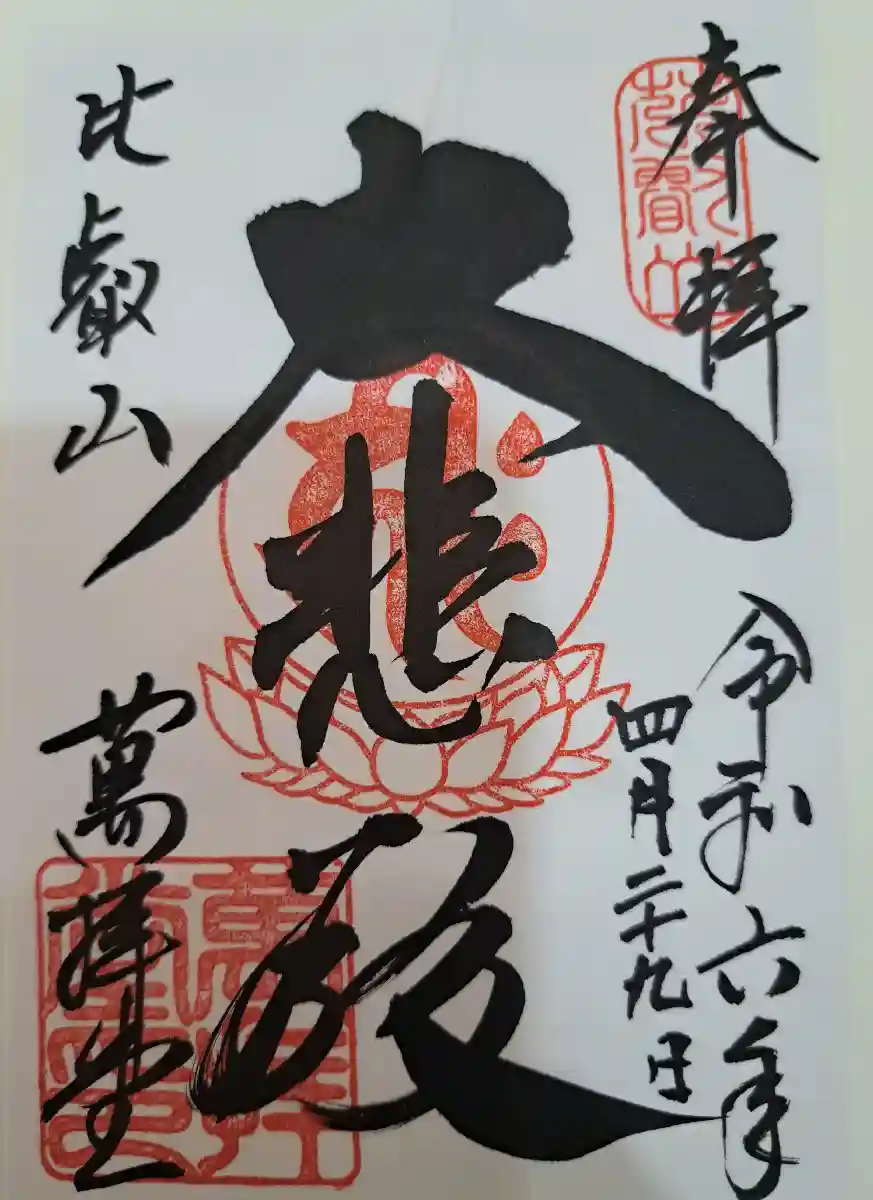 奉拝
令和六年
四月二十九日
大悲殿
比叡山
萬拝堂